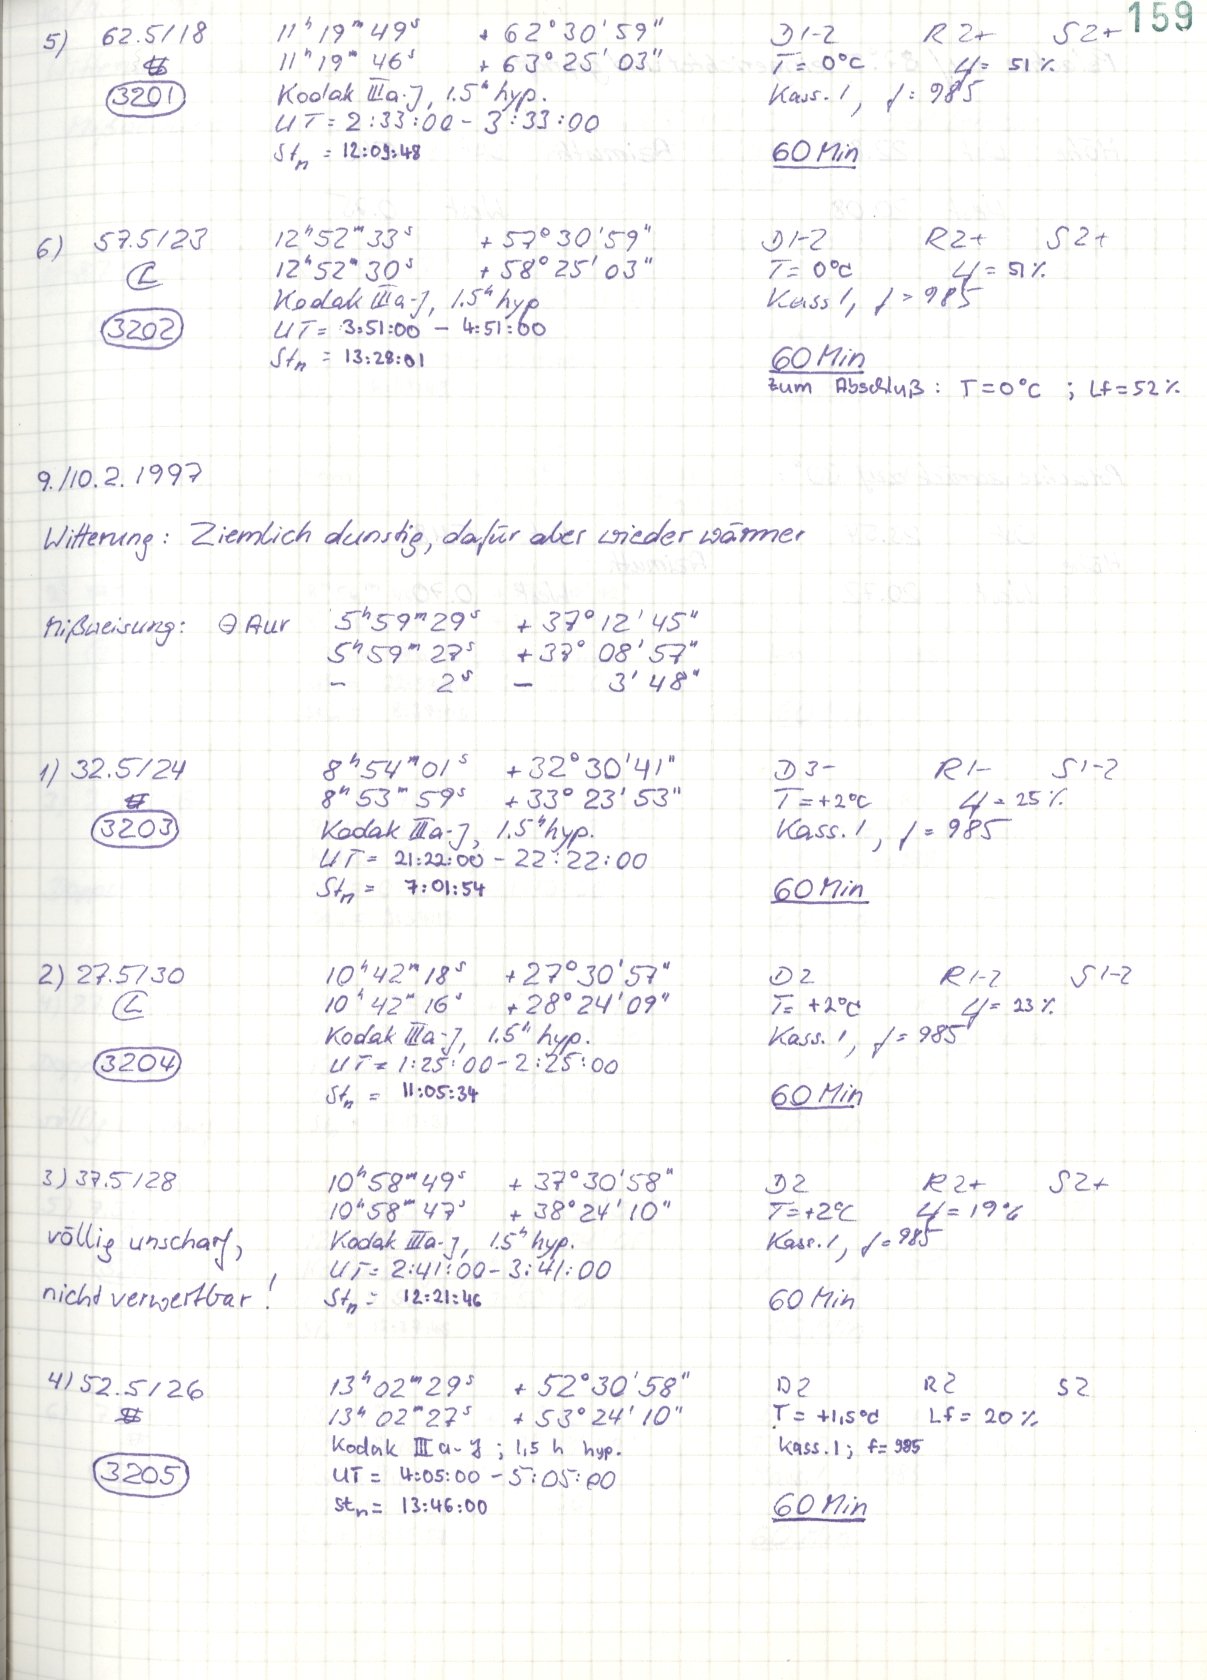 159
5) 62.5/18 11ʰ 19ᵐ 49ˢ + 62° 30' 59" D1-2 R2+ S2+
11ʰ 19ᵐ 46ˢ + 63° 25' 03" T = 0°C Lf = 51%
3201 Kodak IIIa-J, 1.5ʰ hyp. Kass. 1, f = 985
UT = 2:33:00 - 3:33:00
Stₙ = 12:09:48 60 Min
6) 57.5/23 12ʰ 52ᵐ 33ˢ + 57° 30' 59" D1-2 R2+ S2+
L 12ʰ 52ᵐ 30ˢ + 58° 25' 03" T = 0°C Lf = 51%
Kodak IIIa-J, 1.5ʰ hyp Kass 1, f = 985
3202 UT = 3:51:00 - 4:51:00
Stₙ = 13:28:01 60 Min
zum Abschluß : T = 0°C ; Lf = 52%
9./10.2.1997
Witterung: Ziemlich dunstig, dafür aber wieder wärmer
Mißweisung: Θ Aur 5ʰ 59ᵐ 29ˢ + 37° 12' 45"
5ʰ 59ᵐ 27ˢ + 37° 08' 57"
- 2ˢ - 3' 48"
1) 32.5/24 8ʰ 54ᵐ 01ˢ + 32° 30' 41" D3- R1- S1-2
8ʰ 53ᵐ 59ˢ + 33° 23' 53" T = +2°C Lf = 25%
3203 Kodak IIIa-J, 1.5ʰ hyp. Kass. 1, f = 985
UT = 21:22:00 - 22:22:00
Stₙ = 7:01:54 60 Min
2) 27.5/30 10ʰ 42ᵐ 18ˢ + 27° 30' 57" D2 R1-2 S1-2
L 10ʰ 42ᵐ 16ˢ + 28° 24' 09" T = +2°C Lf = 23%
Kodak IIIa-J, 1.5ʰ hyp. Kass. 1, f = 985
3204 UT = 1:25:00 - 2:25:00
Stₙ = 11:05:34 60 Min
3) 37.5/28 10ʰ 58ᵐ 49ˢ + 37° 30' 58" D2 R2+ S2+
10ʰ 58ᵐ 47ˢ + 38° 24' 10" T = +2°C Lf = 19%
völlig unscharf, Kodak IIIa-J, 1.5ʰ hyp. Kass. 1, f = 985
UT = 2:41:00 - 3:41:00
nicht verwertbar! Stₙ = 12:21:46 60 Min
4) 52.5/26 13ʰ 02ᵐ 29ˢ + 52° 30' 58" D2 R2 S2
13ʰ 02ᵐ 27ˢ + 53° 24' 10" T = +1,5°C Lf = 20%
Kodak III a-J ; 1,5 h hyp. Kass. 1 ; f = 985
3205 UT = 4:05:00 - 5:05:00
Stₙ = 13:46:00 60 Min